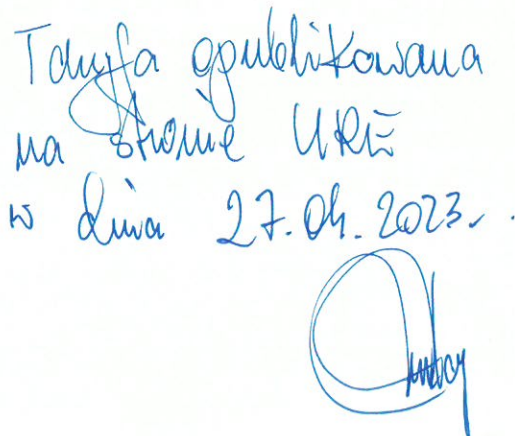 Taryfa opublikowana
na stronie URE
w dniu 27.04.2023r.